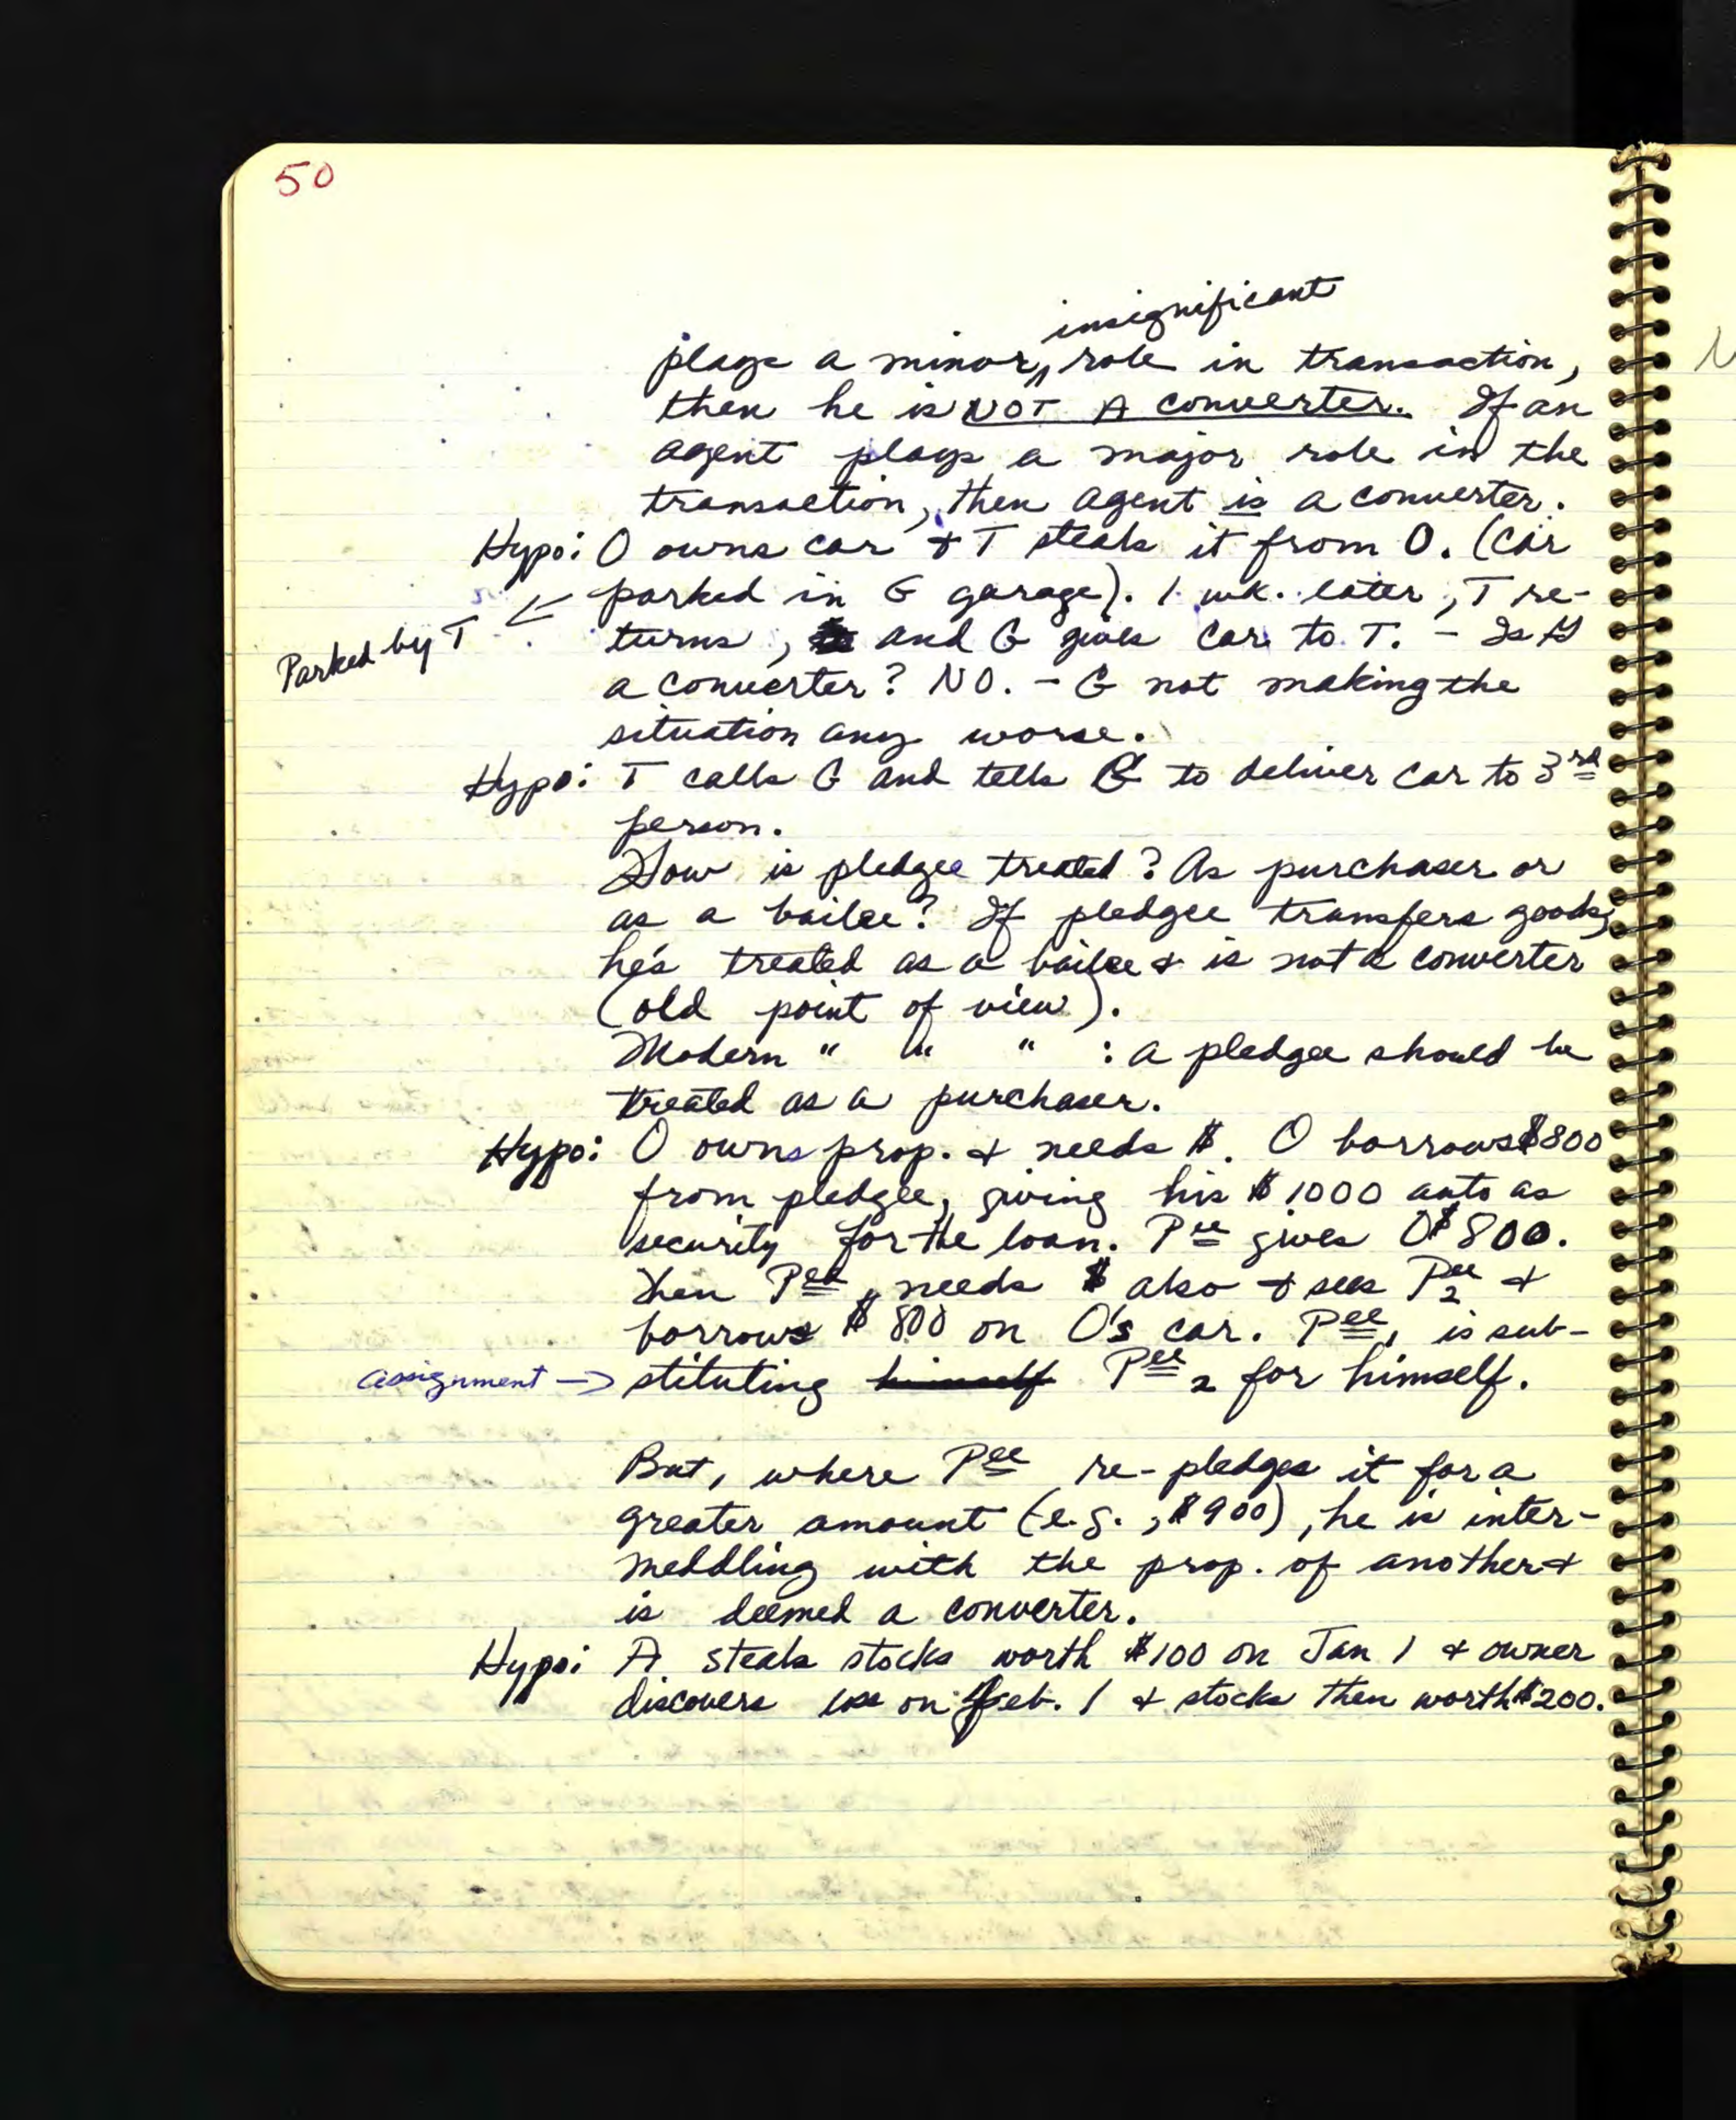 50
insignificant
plays a minor, ^ role in transaction,
then he is NOT A converter. If an
agent plays a major role in the
transaction, then agent is a converter.
Hypo: O owns car & T steals it from O. (Car
parked in G garage). 1 wk. later, T re-
Parked by T
turns, and G gives car to T. - Is G
a converter? NO. - G not making the
situation any worse.
Hypo: T calls G and tells G to deliver car to 3rd
person.
How is pledgee treated? As purchaser or
as a bailee? If pledgee transfers goods,
he's treated as a bailee & is not a converter
(old point of view).
Modern " " " : a pledgee should be
treated as a purchaser.
Hypo: O owns prop. & needs $. O borrows $800
from pledgee, giving his $1000 auto as
security for the loan. Pee gives O $800.
Then Pee, needs $ also & sees Pee2 &
borrows $800 on O's car. Pee1 is sub-
assignment → stituting himself Pee2 for himself.
But, where Pee re-pledges it for a
greater amount (e.g., $900), he is inter-
meddling with the prop. of another &
is deemed a converter.
Hypo: A steals stocks worth $100 on Jan 1 & owner
discovers loss on Feb. 1 & stocks then worth $200.